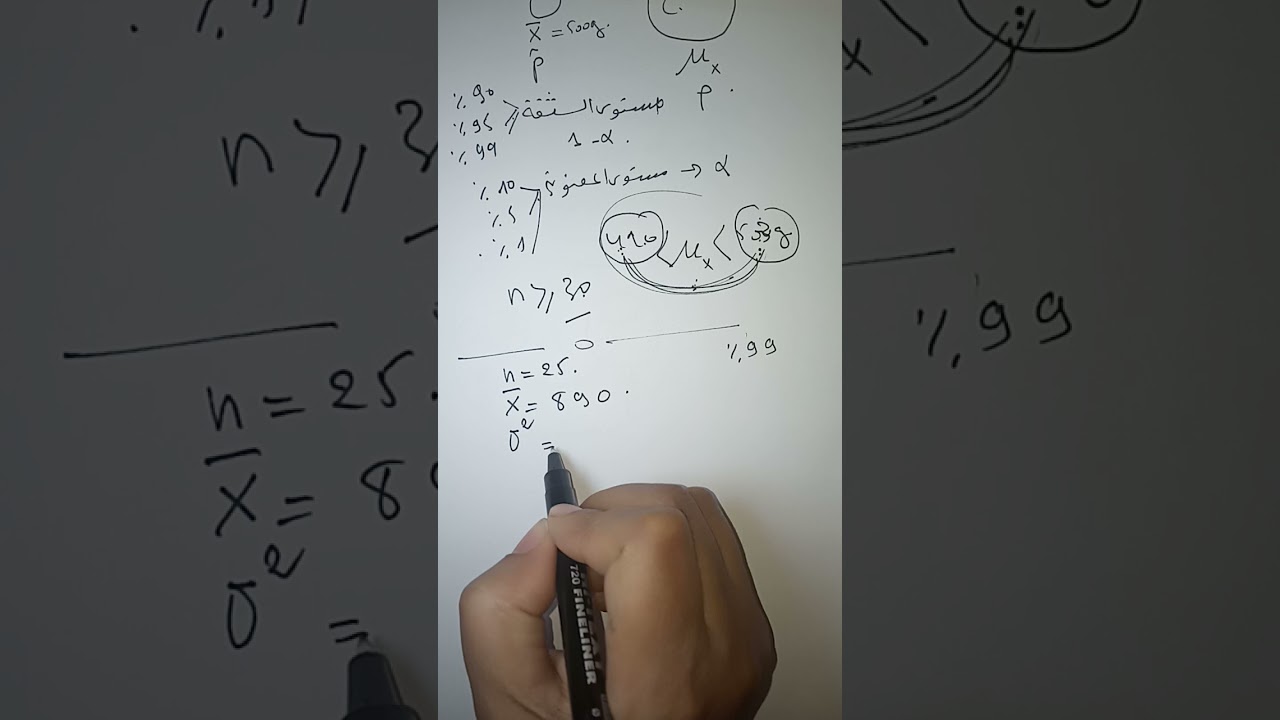 x̄ = 500g.
p̂
μx
p.
٪90
٪95 مستوى الثقة
٪99 1-α.
٪10 مستوى المعنوية → α
٪5
٪1
490 < μx <
n ≥ 30
٪99
n = 25.
x̄ = 890.
σ² =
720 FINELINER